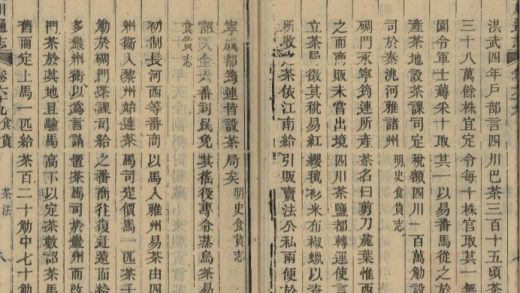 洪武四年戶部言四川巴茶三百十五頃茶
三十八萬餘株宜定令每十株官取其一無
園令軍士薅采十取其一以易番馬從之於
產茶地設茶課司定稅額四川一百萬觔設
司於秦洮河雅諸州 明史食貨志
碉門永寧筠連所產茶名曰剪刀麄葉惟西
之而商販未嘗出境四川茶鹽都轉運使言
立茶局徵其稅易紅纓氊衫米布椒蠟以資
所收茶依江南給引販賣法公私兩便於
寧成都筠連皆設茶局矣 明史食貨志
詔天全六番司民免其徭役專令蒸烏茶易
食貨志
初制長河西等番商以馬入雅州易茶由四
州衛入黎州始達茶馬司定價馬一匹茶千
觔於碉門茶課司給之番商往復迂遠而給
多嚴州衛以為言請置茶馬司於嚴州而改
門茶於其地且驗馬高下以定茶數詔茶馬
舊而定上馬一匹給茶百二十觔中七十觔
川通志 卷六十九 食貨 茶法 八